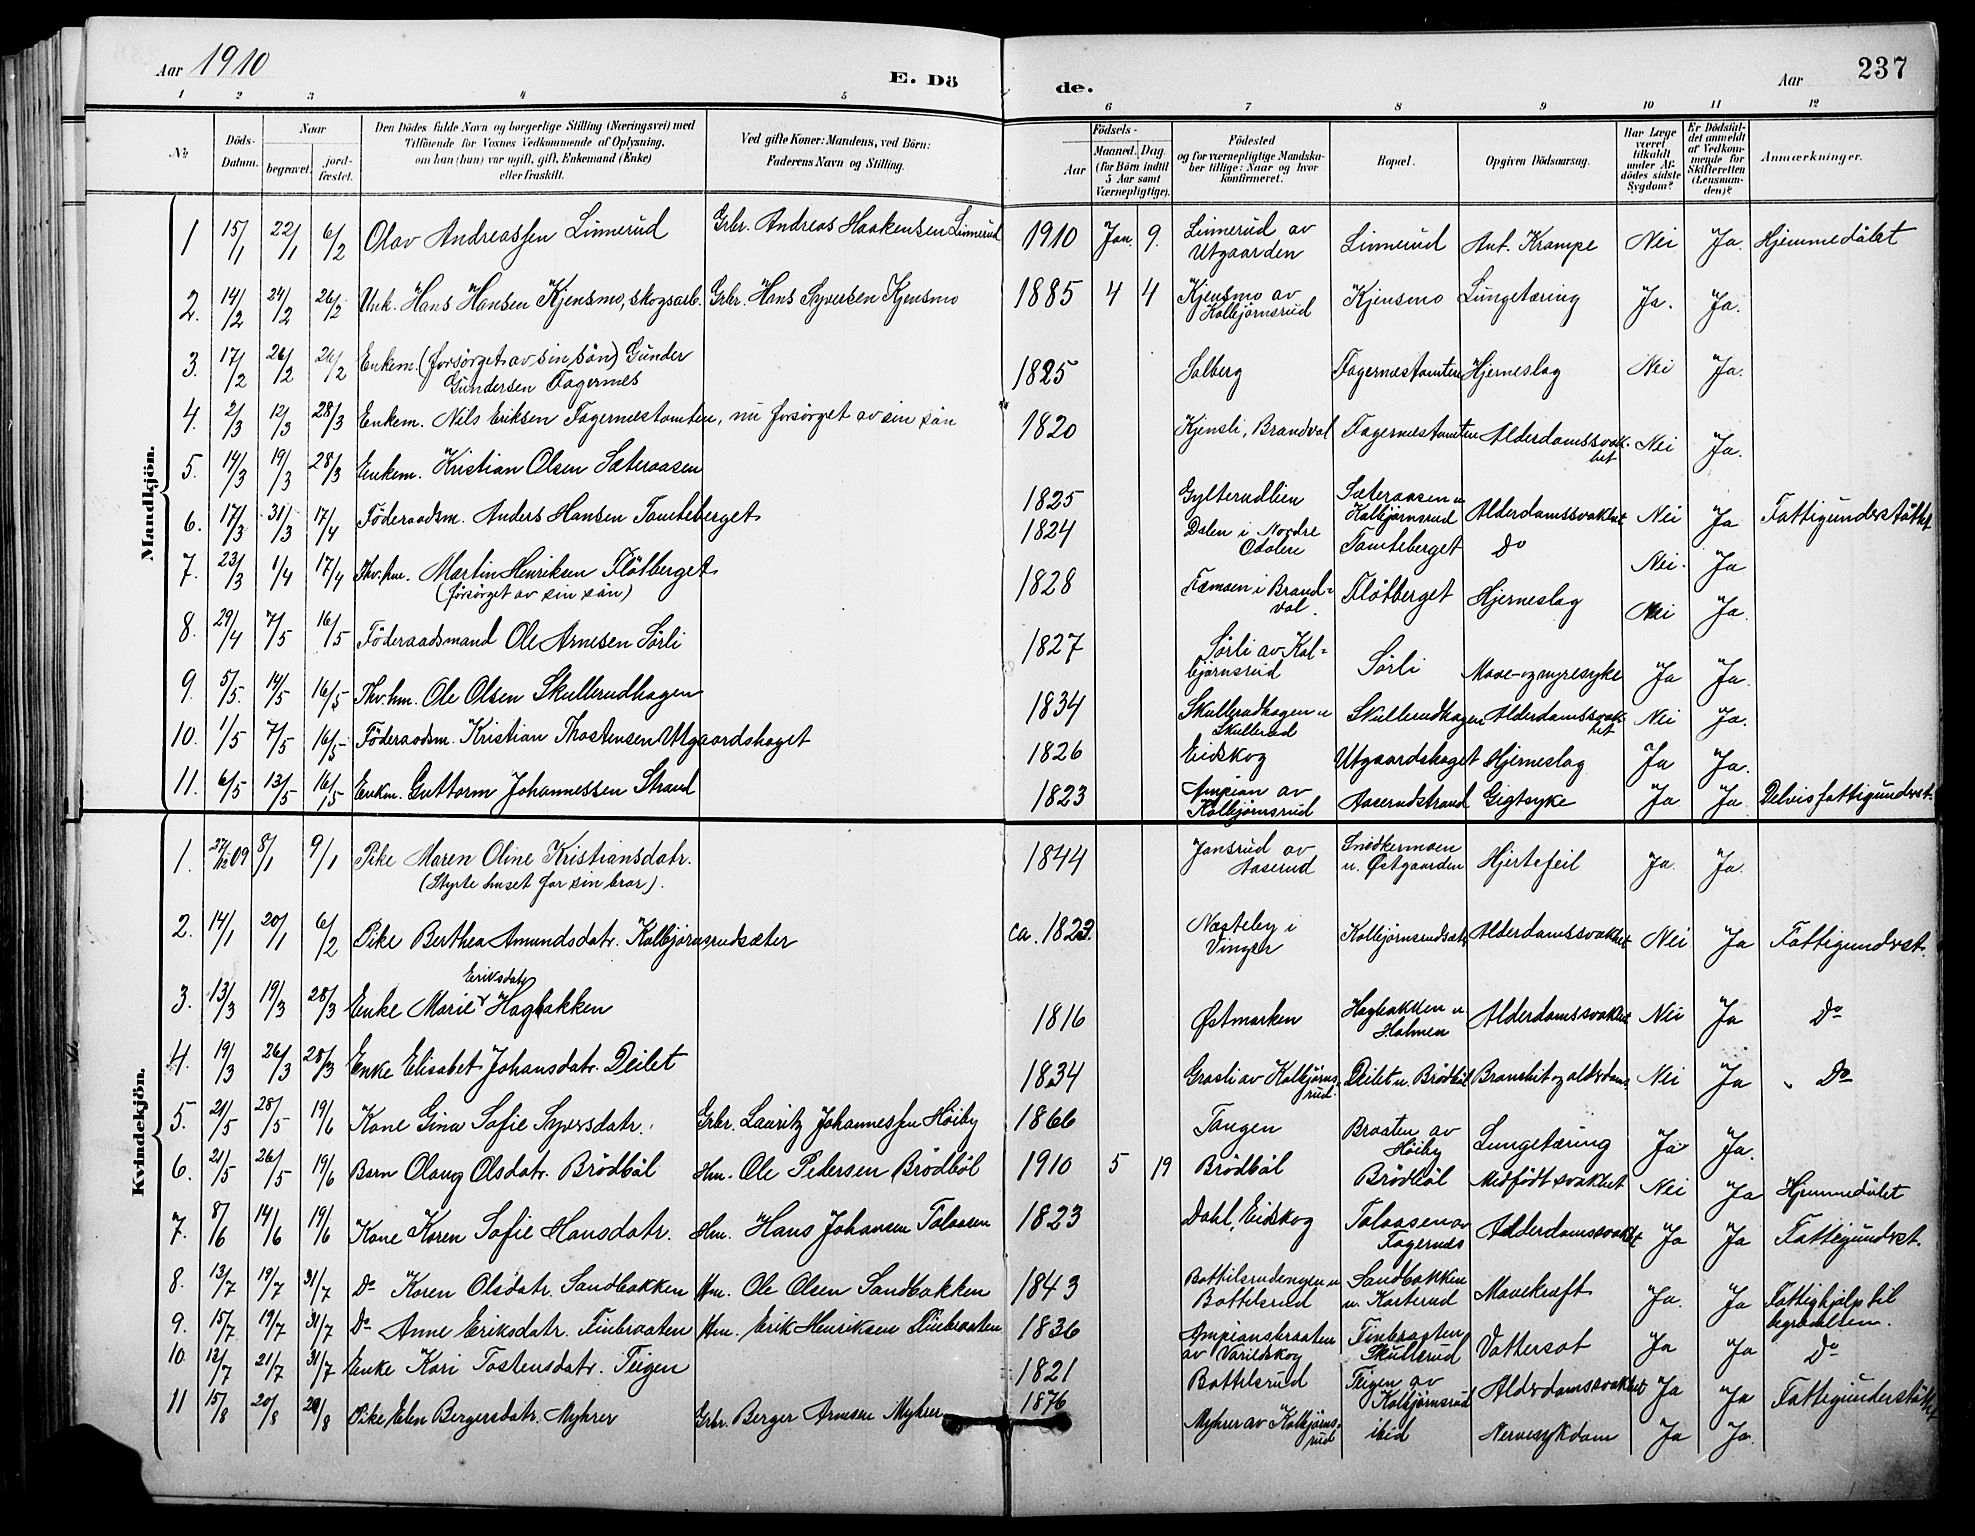 Aar 1910
E. Dö
de.
Aar
237
1 2 3 4 5 6 7 8 9 10 11 12
No.
Döds-Datum.
Naar
begravet.
jord-fæstet.
Den Dödes fulde Navn og borgerlige Stilling (Næringsvei) med
Tilföiende för Voxnes Vedkommende af Oplysning,
om han (hun) var ugift, gift, Enkemand (Enke)
eller fraskilt.
Ved gifte Koner: Mandens, ved Börn:
Faderens Navn og Stilling.
Födsels-
Aar
Maaned. Dag.
(for Börn indtil
5 Aar samt
Værnepligtige).
Födested
og for værnepligtige Mandska-
ber tillige: Naar og hvor
konfirmeret.
Bopæl.
Opgiven Dödsaarsag.
Har Læge
været
tilkaldt
under Af-
dödes sidste
Sygdom?
Er Dödsfal-
det anmeldt
af Vedkom-
mende for
Skifteretten
(Lensman-
den)?
Anmærkninger.
Mandkjön.
1 15/1 22/1 6/2 Olav Andreassen Linnerud Grbr. Andreas Haakensen Linnerud 1910 Jan. 9. Linnerud av Utgaarden Linnerud Ant. Krampe Nei Ja. Hjemmedöbt
2. 14/2 24/2 26/2 Unk. Hans Hansen Kjensmo, skogsarb. Grbr. Hans Syversen Kjensmo 1885 4 4 Kjensmo av Kolbjørnsrud Kjensmo Lungetæring Ja. Ja.
3. 17/2 26/2 26/2 Enkem. (forsörget av sin sön) Gunder Gundersen Fagernes 1825 Solberg Fagernestomten Hjerneslag Nei Ja.
4. 2/3 12/3 28/3 Enkem. Nils Eriksen Fagernestomten, nu forsörget av sin sön 1820 Kjensli, Brandval Fagernestomten Alderdomssvakhet Nei Ja.
5. 14/3 19/3 28/3 Enkem. Kristian Olsen Sæteraasen 1825 Gylterudlien Sæteraasen u Kolbjørnsrud Alderdomssvakhet Nei Ja Fattigunderstöttet
6. 17/3 31/3 17/4 Föderaadsm. Anders Hansen Tomteberget 1824 Dalen i Nordre Odalen Tomteberget Do Nei. Ja
7. 23/3 1/4 17/4 Thv. hm. Martin Henriksen Flötberget (forsörget av sin sön) 1828 Tæmoen i Brandval. Flötberget Hjerneslag Nei Ja.
8. 29/4 7/5 16/5 Föderaadsmand Ole Arnesen Sørli 1827 Sørli av Kolbjørnsrud Sørli Mave- og nyresyke Ja Ja.
9. 5/5. 14/5 16/5 Thv. hm. Ole Olsen Skullerudhagen 1834 Skullerudhagen u Skullerud Skullerudhagen Alderdomssvakhet Nei Ja.
10. 1/5 7/5 16/5 Föderaadsm. Kristian Thostensen Utgaardshaget 1826 Eidskog Utgaardshaget Hjerneslag Ja Ja.
11. 6/5 13/5 16/5 Enkm. Guttorm Johannessen Strand 1823 Ampian av Kolbjørnsrud Aaserudstrand Gigtsyke Ja Ja. Delvis fattigundrst.
Kvindekjön.
1. 27/12 09 8/1 9/1 Pike Maren Oline Kristiansdatr. (Styrte huset for sin bror). 1844 Jansrud av Aaserud Snedkermoen u. Østgaarden Hjertefeil Ja. Ja.
2. 14/1 20/1 6/2 Pike Berthea Amundsdatr. Kolbjørnsrudsæter ca. 1823. Næsteby i Vinger Kolbjörnsrudsætr Alderdomssvakhet Nei Ja Fattigundrst.
3. 13/3 19/3 28/3 Enke Marie Eriksdatr Hagbakken 1816 Østmarken Hagbakken u Holmen Alderdomssvakhet Nei Ja Do
4. 19/3 26/3 28/3 Enke Elisabet Johansdatr. Deilet 1834 Graali av Kolbjörnsrud. Deilet u. Brödböl Bronkit og aldrdoms Nei Ja Do
5. 21/5 28/5 19/6 Kone Gina Sofie Syversdatr. Grbr. Lauritz Johannessen Höiby 1866 Tangen Braaten av Höiby Lungetæring Ja Ja.
6. 21/5 26/5 19/6 Barn Olaug Olsdatr. Brödböl Hm. Ole Pedersen Brödböl 1910 5 19 Brödböl Brödböl Medfödt svakhet Nei Ja Hjemmedöbt
7. 8/6 14/6 19/6 Kone Karen Sofie Hansdatr. Hm. Hans Johansen Tolaasen 1823 Dahl, Eidskog Tolaasen av Fagernes Alderdomssvakhet Ja Ja Fattigundrst.
8. 13/7 19/7 31/7 Do Karen Olsdatr. Sandbakken Hm. Ole Olsen Sandbakken 1843 Bottilsrudengen u Bottilsrud Sandbakken u. Karterud Mavekraft Ja. Ja Fattighjælp til begravelsen.
9. 15/7 19/7 31/7 Do Anne Eriksdatr. Finbraaten Hm. Erik Henriksen Finbraaten 1836 Ampiansbraaten av Varildskog Finbraaten Skullerud Vattersot Ja Ja Do
10. 12/7 21/7 31/7 Enke Kari Tostensdatr. Teigen 1821 Bottilsrud Teigen av Kolbjørnsrud Aldrdomssvakhet Ja Ja Fattigunderstöttet
11 15/8 20/8 28/8 Pike Elen Bergersdatr. Myhrer Grbr. Berger Arnesen Myhrer 1876 Myhrer av Kolbjörnsrud ibid Nervesykdom Ja Ja.